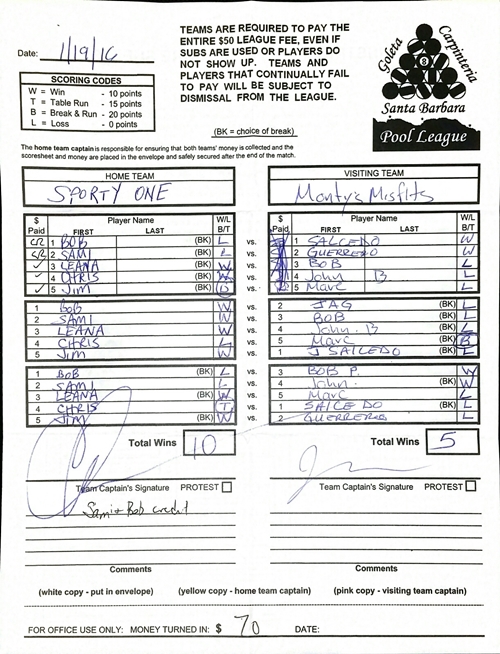 TEAMS ARE REQUIRED TO PAY THE
ENTIRE $50 LEAGUE FEE, EVEN IF
SUBS ARE USED OR PLAYERS DO
NOT SHOW UP. TEAMS AND
PLAYERS THAT CONTINUALLY FAIL
TO PAY WILL BE SUBJECT TO
DISMISSAL FROM THE LEAGUE.
(BK = choice of break)
Date: 1/19/16
SCORING CODES
W = Win - 10 points
T = Table Run - 15 points
B = Break & Run - 20 points
L = Loss - 0 points
Goleta Carpinteria
8
Santa Barbara
Pool League
The home team captain is responsible for ensuring that both teams' money is collected and the
scoresheet and money are placed in the envelope and safely secured after the end of the match.
HOME TEAM VISITING TEAM
SPORTY ONE Monty's Misfits
$ Paid Player Name FIRST LAST W/L B/T $ Paid Player Name FIRST LAST W/L B/T
CR 1 BOB (BK) L vs. 1 SALCEDO W
CR 2 SAMI (BK) L vs. 2 GUERRERO W
✓ 3 LEANA (BK) W vs. 3 BOB L
✓ 4 CHRIS (BK) W vs. 4 John B L
✓ 5 JIM (BK) B vs. 5 Marc L
1 BOB W vs. 2 JAG (BK) L
2 SAMI W vs. 3 BOB (BK) L
3 LEANA W vs. 4 John. B (BK) L
4 CHRIS L vs. 5 Marc (BK) B
5 JIM W vs. 1 J SALCEDO (BK) L
1 BOB (BK) L vs. 3 BOB P. W
2 SAMI L vs. 4 John. (BK) W
3 LEANA (BK) W vs. 5 Marc L
4 CHRIS T vs. 1 SALCEDO (BK) L
5 JIM (BK) W vs. 2 GUERRERO L
Total Wins 10 Total Wins 5
Team Captain's Signature PROTEST Team Captain's Signature PROTEST
Sami + Bob credit
Comments Comments
(white copy - put in envelope) (yellow copy - home team captain) (pink copy - visiting team captain)
FOR OFFICE USE ONLY: MONEY TURNED IN: $ 70 DATE: